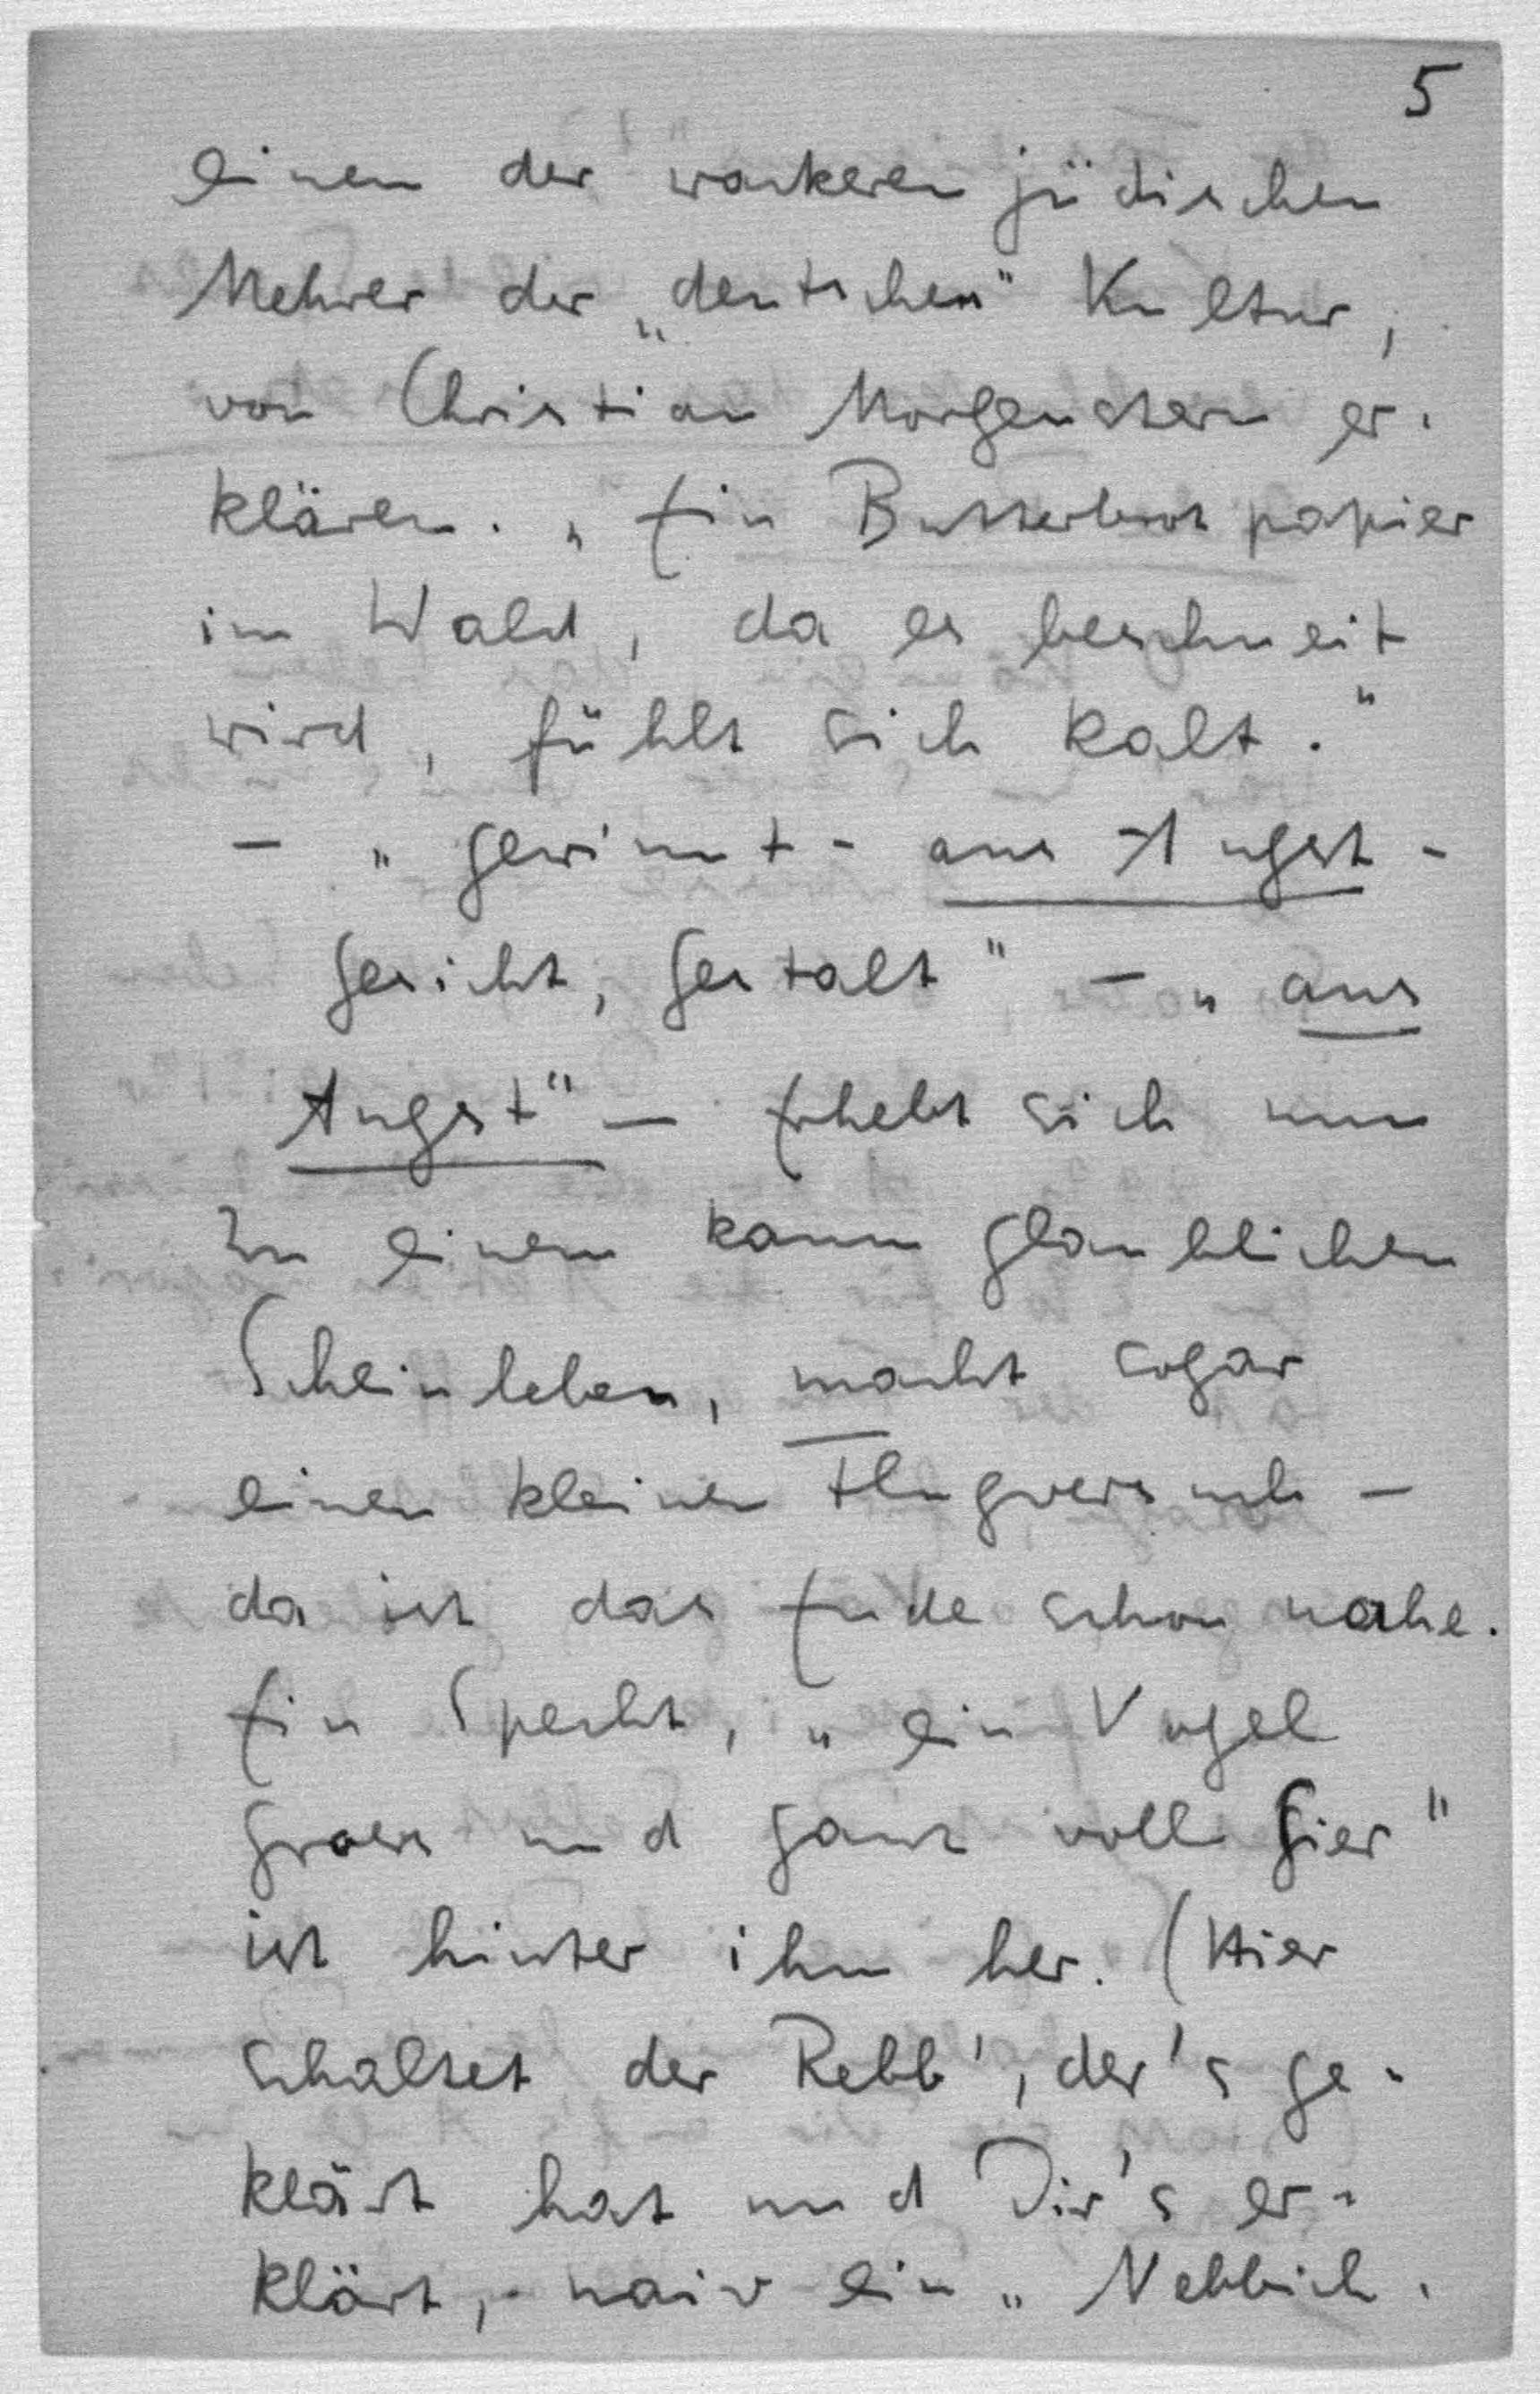 5
einen der wackeren jüdischen
Mehrer der „deutschen" Kultur,
von Christian Morgenstern er-
klären. „Ein Butterbrotpapier
im Wald, da es beschneit
wird, fühlt sich kalt."
– „gewinnt - aus Angst -
Gesicht, Gestalt" – „aus
Angst" – Erhebt sich nun
zu einem kaum glaublichen
Scheinleben, macht sogar
einen kleinen Flugversuch –
da ist das Ende schon nahe.
Ein Specht, „ein Vogel
gross und ganz voll Gier"
ist hinter ihm her. (Hier
schaltet der Rebb', der's ge-
klärt hat und Dir's er-
klärt, - naiv ein „Nebbich.